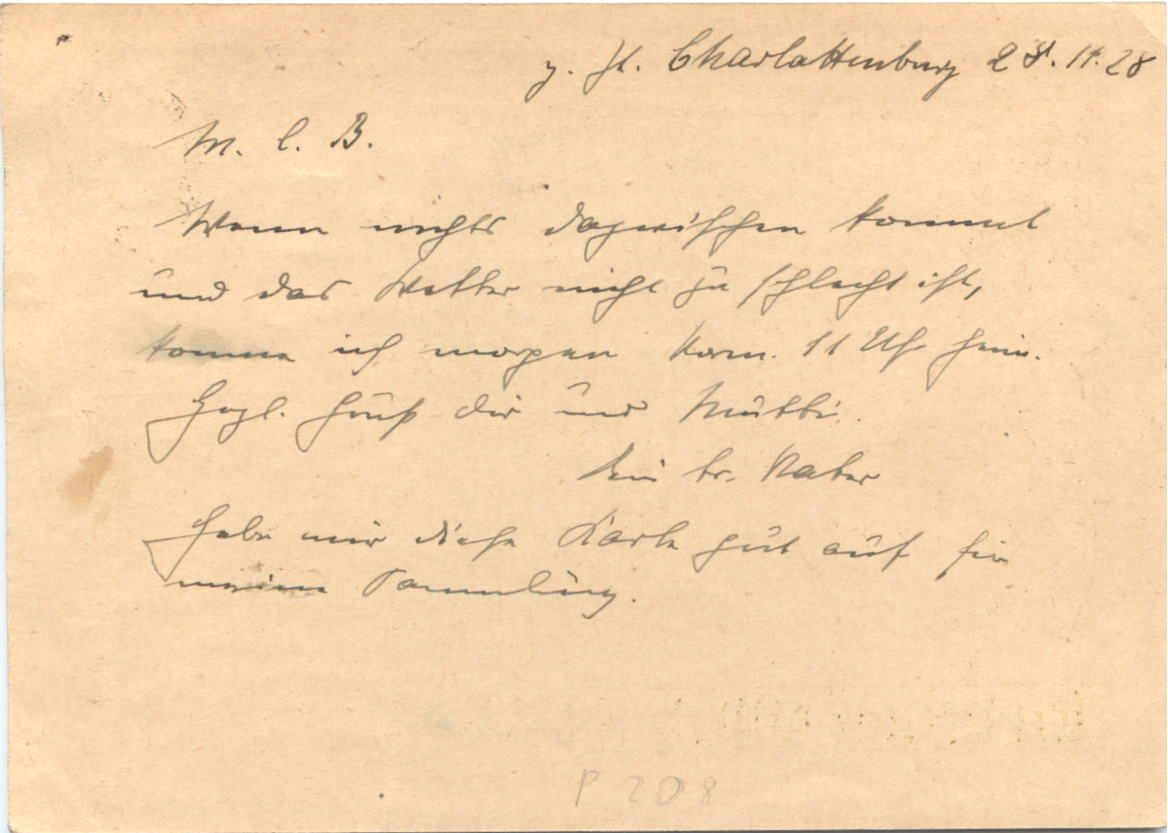 z. Zt. Charlottenburg 28. 11. 28
M. l. B.
Wenn nichts dazwischen kommt
und das Wetter nicht zu schlecht ist,
komme ich morgen Vorm. 11 Uhr heim.
Hrzl. Gruß dir und Mutti.
Dein tr. Vater
Hebe mir diese Karte gut auf für
meine Sammlung.
P 208